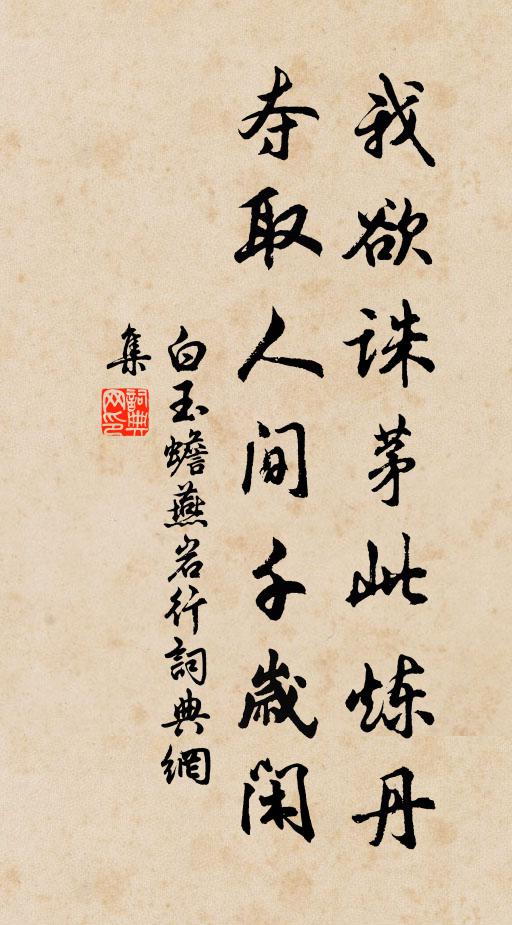 我欲誅茅此炼丹
夺取人间千歲闲
白玉蟾燕岩行詞典網
集
詞典
网印